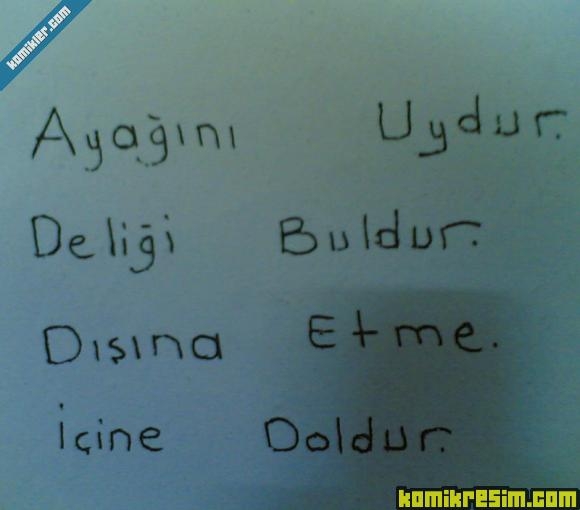 komikler.com
Ayağını Uydur.
Deliği Buldur.
Dışına Etme.
İçine Doldur.
komikresim.com